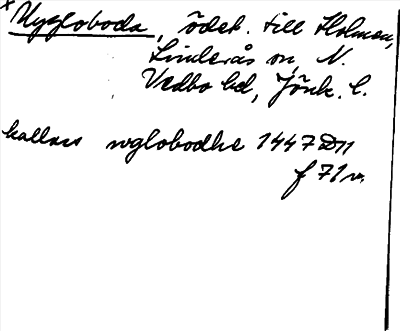 x Uggloboda, ödet. till Holmen,
Linderås sn, N.
Vedbo hd, Jönk. l.
kallas wglobodhe 1447 D11
f 71 v.